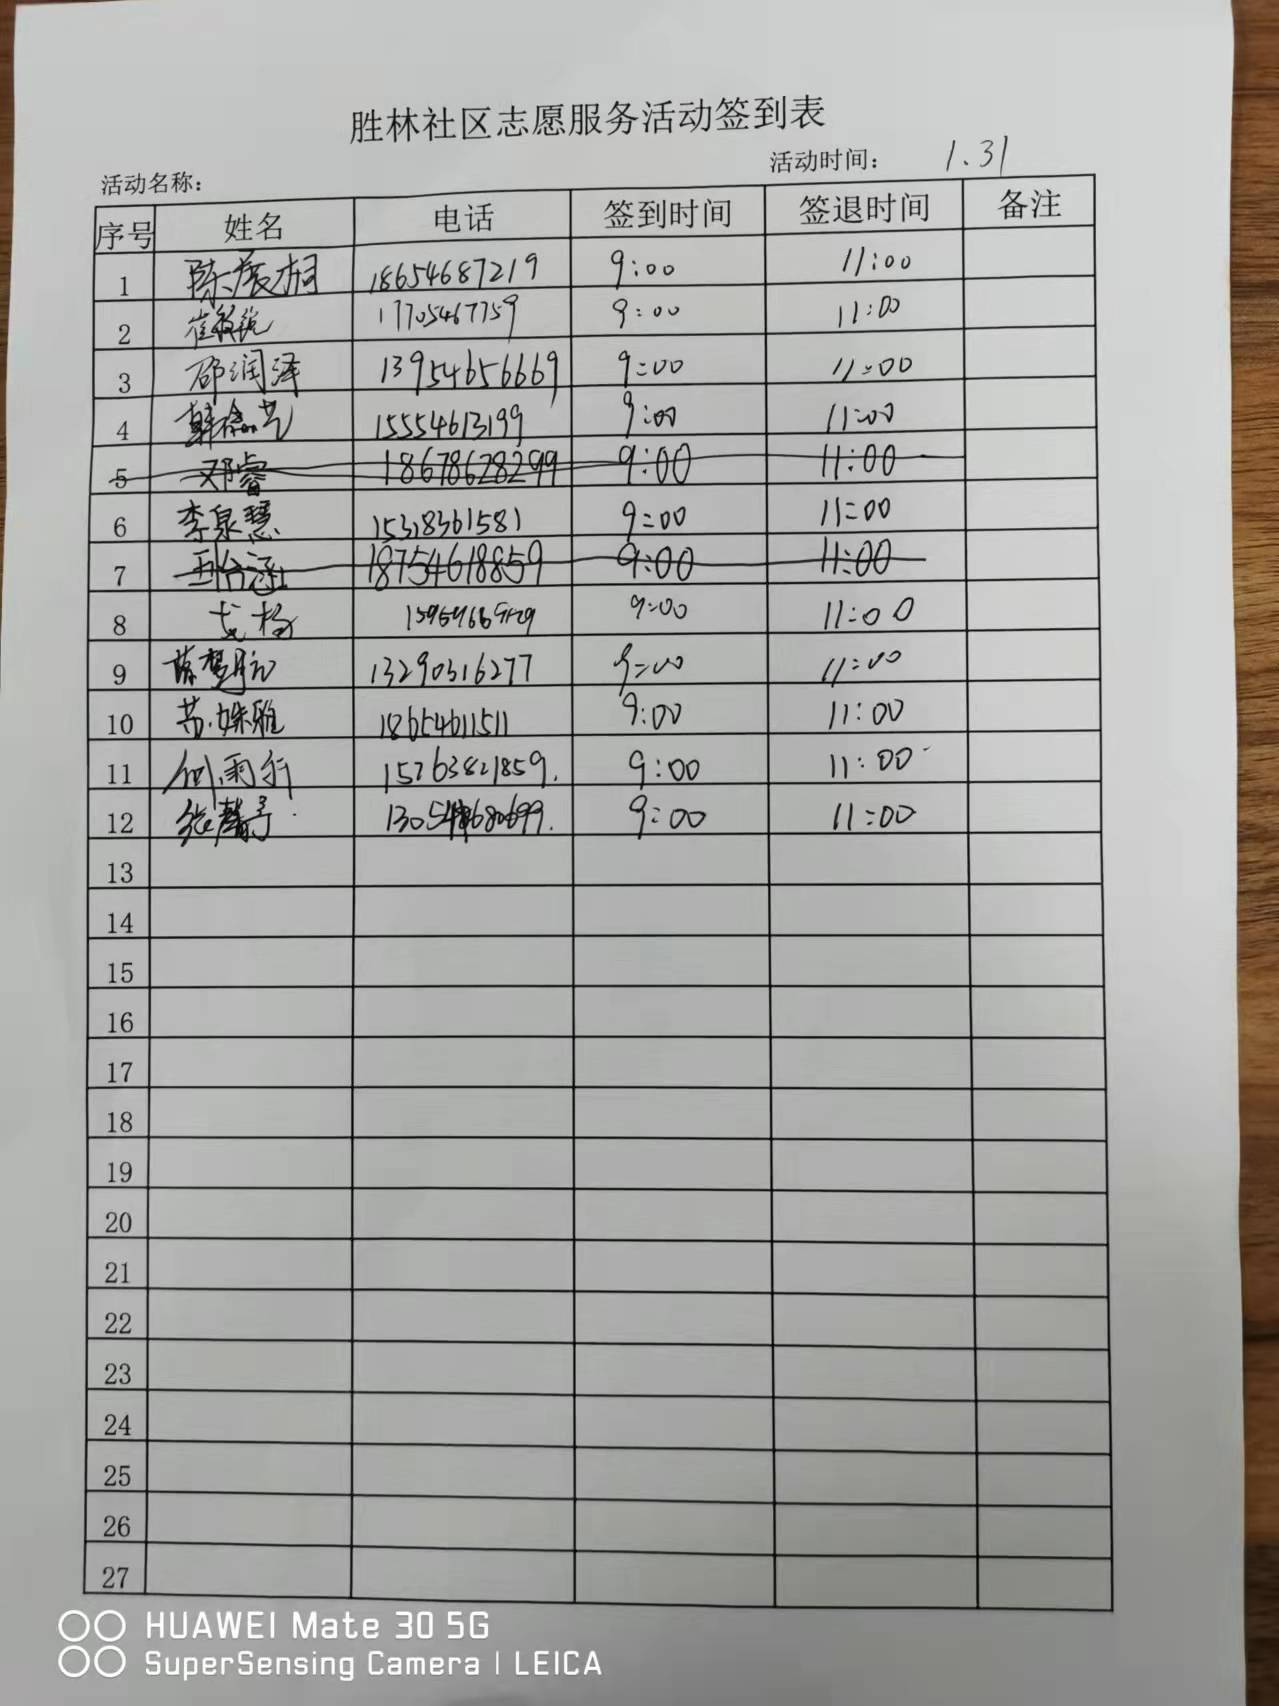 胜林社区志愿服务活动签到表
活动名称： 活动时间： 1.31
序号 姓名 电话 签到时间 签退时间 备注
1 陈展桐 18654687219 9:00 11:00
2 崔 17705467759 9:00 11:00
3 邵润泽 13954656669 9:00 11:00
4 韩 艺 15554613199 9:00 11:00
5 邓睿 18678628299 9:00 11:00
6 李泉慧 15318361581 9:00 11:00
7 18754618859 9:00 11:00
8 9:00 11:00
9 13290316277 9:00 11:00
10 苏姝雅 18654611511 9:00 11:00
11 何雨行 15263821859. 9:00 11:00
12 张馨予 9:00 11:00
13
14
15
16
17
18
19
20
21
22
23
24
25
26
27
HUAWEI Mate 30 5G
SuperSensing Camera | LEICA